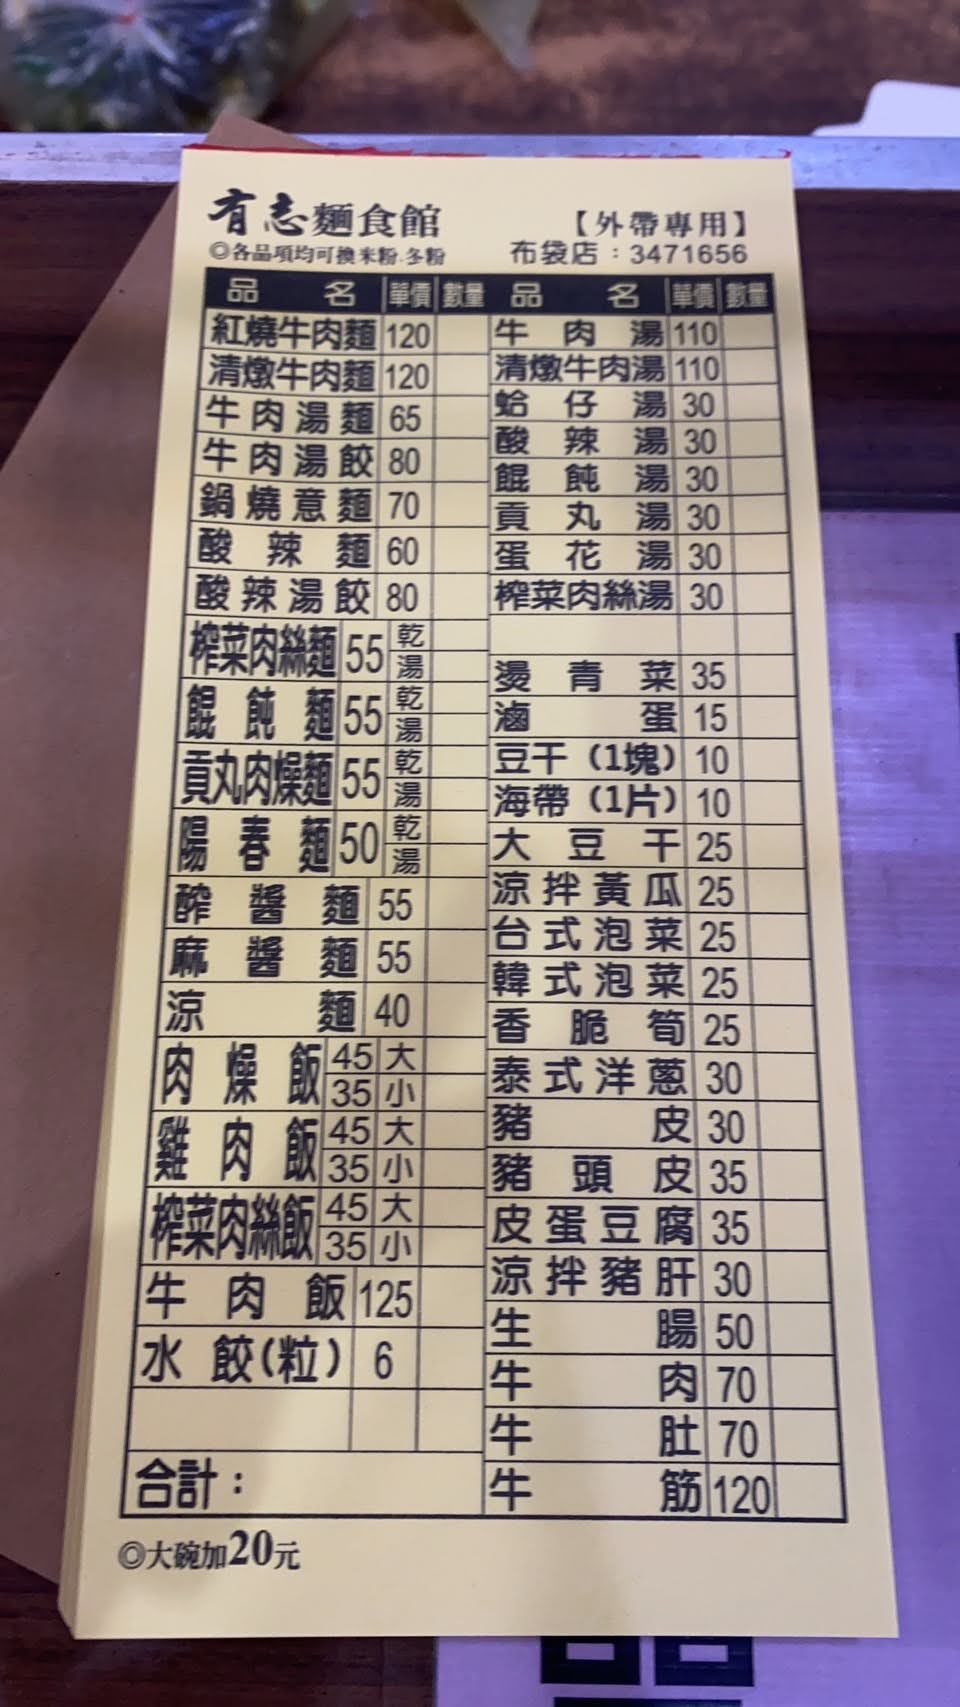 有志麵食館
【外帶專用】
◎各品項均可換米粉.冬粉
布袋店：3471656
品名 單價 數量
紅燒牛肉麵 120
清燉牛肉麵 120
牛肉湯麵 65
牛肉湯餃 80
鍋燒意麵 70
酸辣麵 60
酸辣湯餃 80
榨菜肉絲麵 55 乾 湯
餛飩麵 55 乾 湯
貢丸肉燥麵 55 乾 湯
陽春麵 50 乾 湯
醡醬麵 55
麻醬麵 55
涼麵 40
肉燥飯 45 大 35 小
雞肉飯 45 大 35 小
榨菜肉絲飯 45 大 35 小
牛肉飯 125
水餃(粒) 6
合計：
品名 單價 數量
牛肉湯 110
清燉牛肉湯 110
蛤仔湯 30
酸辣湯 30
餛飩湯 30
貢丸湯 30
蛋花湯 30
榨菜肉絲湯 30
燙青菜 35
滷蛋 15
豆干(1塊) 10
海帶(1片) 10
大豆干 25
涼拌黃瓜 25
台式泡菜 25
韓式泡菜 25
香脆筍 25
泰式洋蔥 30
豬皮 30
豬頭皮 35
皮蛋豆腐 35
涼拌豬肝 30
生腸 50
牛肉 70
牛肚 70
牛筋 120
◎大碗加20元